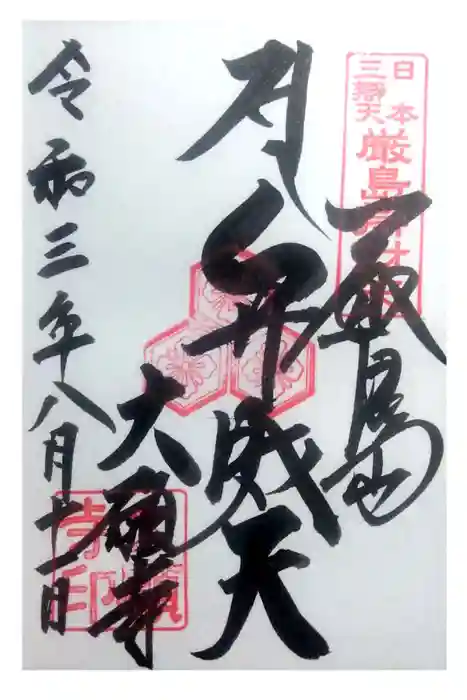 日本
三辨天
厳島弁才天
厳島
弁財天
大願寺
令和三年八月十一日
寺印